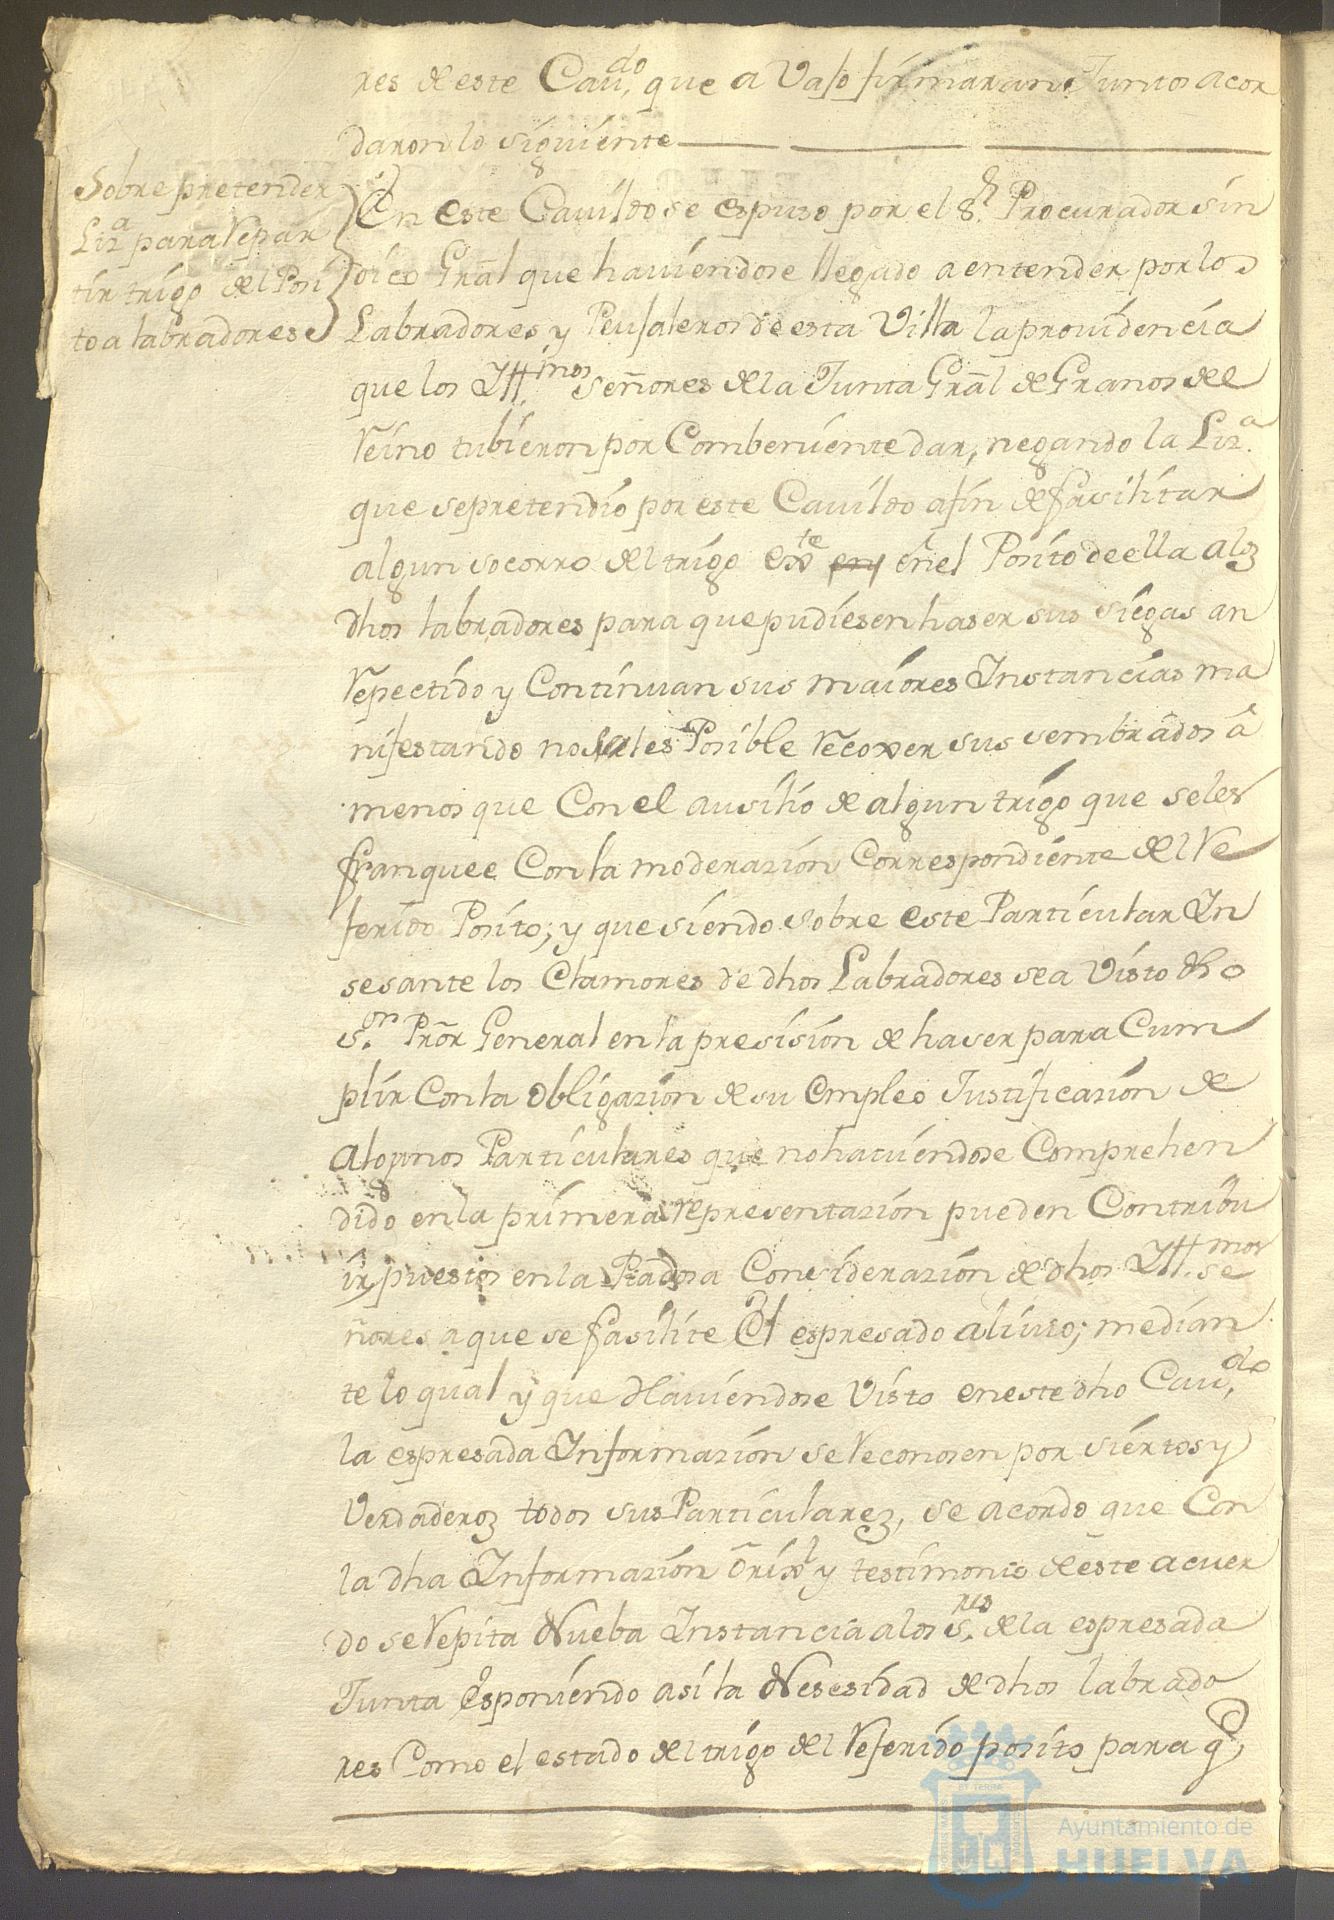 res de este Cav.do que a vajo firmaran: Juntos acor
daron lo siguiente
Sobre pretender
Liz.a para repar
tir trigo del Posi
to a labradores
En este Cavildo se espuso por el S.r Procurador sin
dico Gral que haviendose llegado a entender por los
Labradores y Peujaleros de esta Villa la providencia
que los Ill.mos Señores de la Junta Gral de Granos del
Reino tubieron por Combeniente dar, negando la Liz.a
que se pretendio por este Cavildo afin de fasilitar
algun socorro del trigo exte en el Posito de ella a los
dhos labradores para que pudiesen haser sus siegas an
repectido y Continuan sus maiores Instancias ma
nifestando no serles Posible recoxer sus sembrados â
menos que Con el ausilio de algun trigo que se les
franquee Con la moderazion Correspondiente del Re
ferido Posito; y que siendo sobre este Particular In
sesante los Clamores de dhos Labradores se a visto dho
S.or Pror General en la presision de haser para Cum
plir Con la obligazion de su empleo Justificazion de
algunos Particulares que no haviendose Comprehen
dido en la primera representazion pueden Contribu
ir puestos en la Piadosa Considerazion de dhos Ill.mos Se
ñores a que se fasilite el espresado alivio; median
te lo qual y que Haviendose visto en este dho Cav.do
la espresada Informazion se reconosen por siertos y
verdaderos todos sus Particulares, se acordo que Con
la dha Informazion orixl y testimonio de este acuer
do se repita Nueba Instancia a los S.res de la espresada
Junta esponiendo asi la Nesesidad de dhos labrado
res Como el estado del trigo del referido posito para q.e
Ayuntamiento de
HUELVA